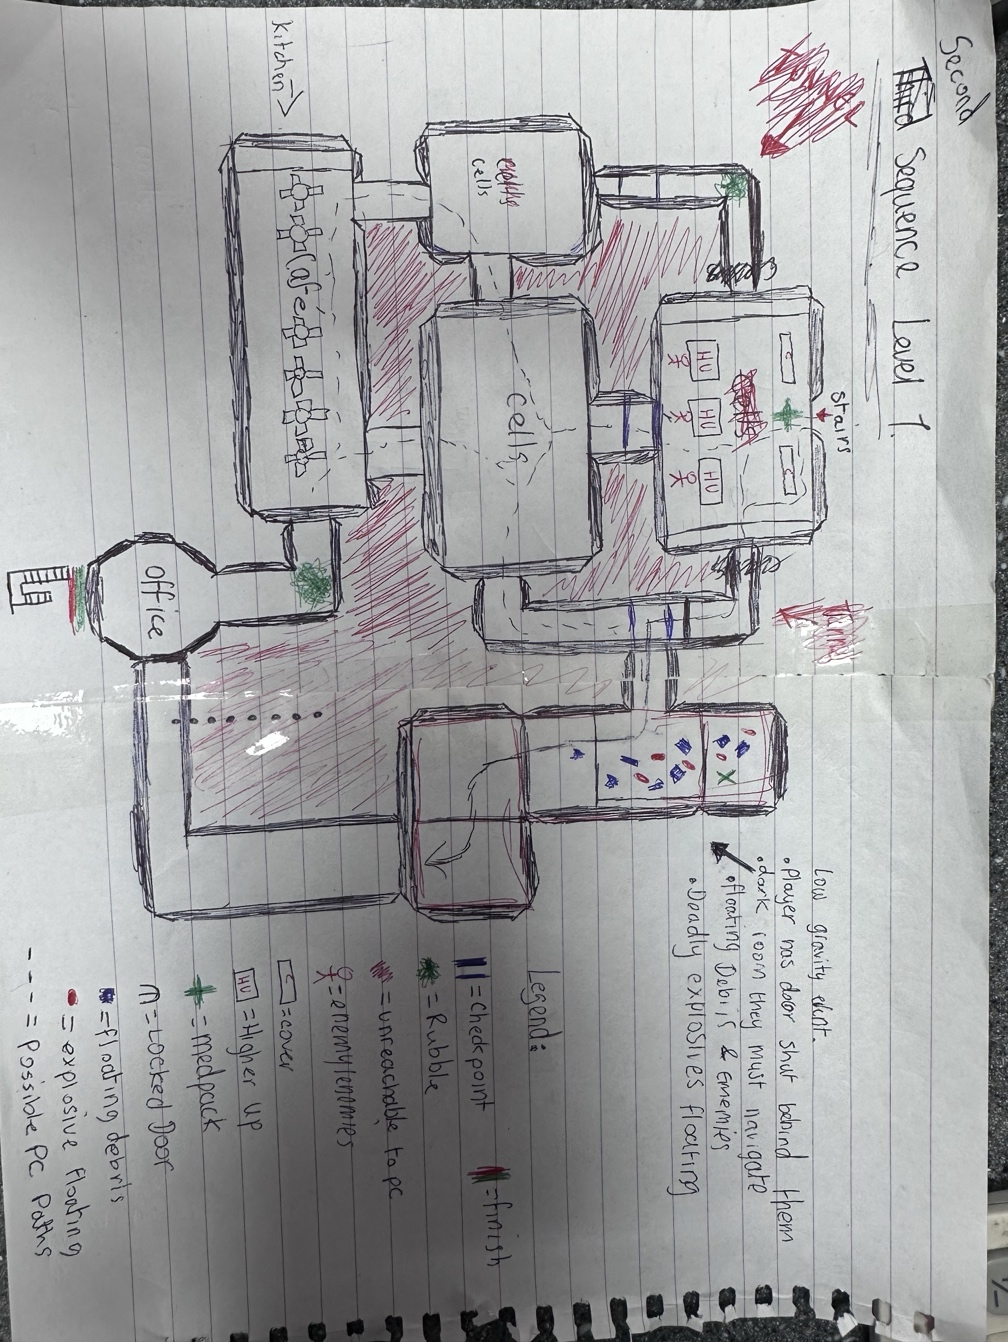 Second
Third Sequence Level 1.
stairs
C
C
HU
HU
HU
cells
Cells
Kitchen →
Café
office
Low gravity
• Player has door shut behind them
• dark room they must navigate
• floating Debris & enemies
• Deadly explosives floating
Legend:
= checkpoint
= finish
= Rubble
= unreachable to pc
= enemy/enemies
C = cover
HU = Higher up
= medpack
= Locked Door
= floating debris
= explosive floating
- - - = Possible PC Paths